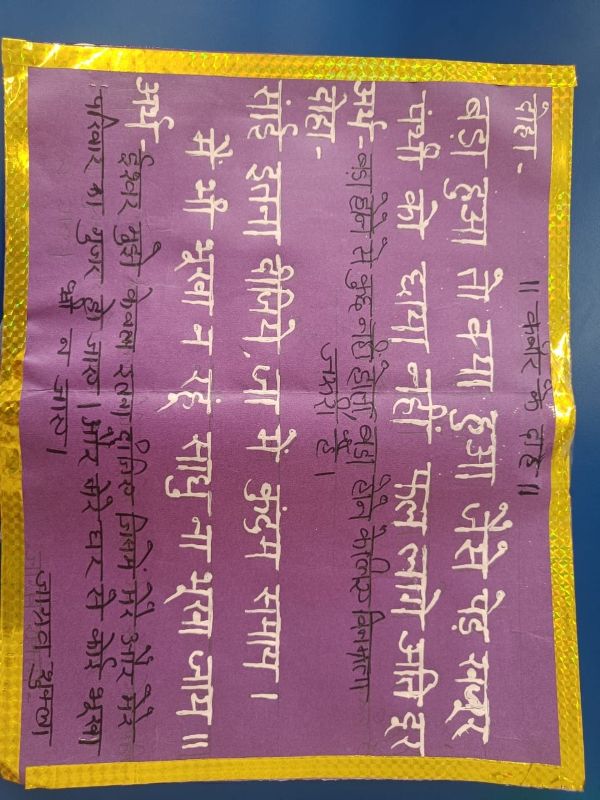 ॥ कबीर के दोहे ॥
दोहा -
बड़ा हुआ तो क्या हुआ जैसे पेड़ खजूर
पंथी को छाया नहीं फल लागे अति दूर
अर्थ - बड़ा होने से कुछ नहीं होता बड़ा होने के लिए विनम्रता
जरूरी है।
दोहा -
सांई इतना दीजिये, जा में कुटुम समाय।
मैं भी भूखा न रहूं साधु ना भूखा जाय॥
अर्थ - ईश्वर मुझे केवल इतना दीजिए जिसमें मेरे और मेरे
परिवार का गुजर हो जाए। और मेरे घर से कोई भूखा
भी न जाए।